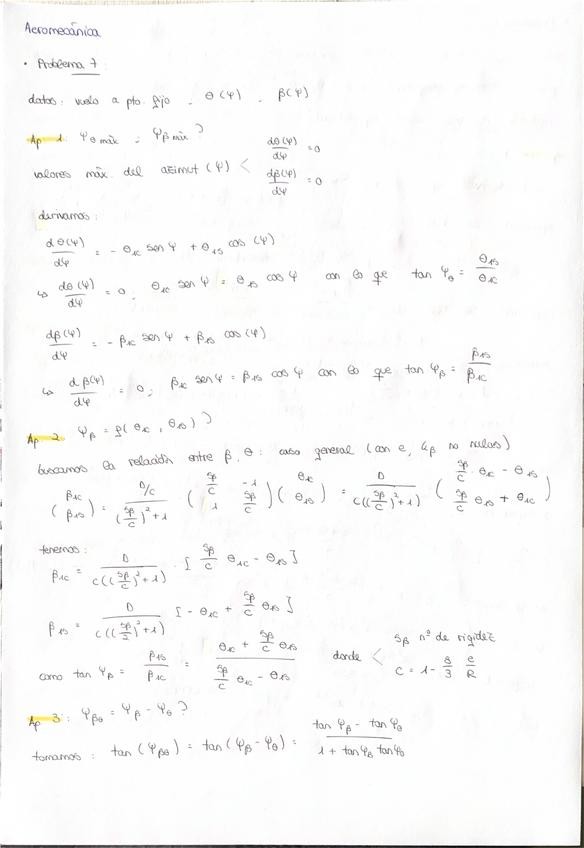 Aeromecánica
• Problema 7:
datos: vuelo a pto. fijo. θ(ψ). β(ψ)
Ap 1. ψθ máx ; ψβ máx ?
valores máx del azimut (ψ) < dθ(ψ)/dψ = 0
dβ(ψ)/dψ = 0
derivamos:
dθ(ψ)/dψ = - θ1C sen ψ + θ1S cos (ψ)
↳ dθ(ψ)/dψ = 0; θ1C sen ψ = θ1S cos ψ con lo que tan ψθ = θ1S/θ1C
dβ(ψ)/dψ = - β1C sen ψ + β1S cos(ψ)
↳ dβ(ψ)/dψ = 0; β1C sen ψ = β1S cos ψ con lo que tan ψβ = β1S/β1C
Ap 2. ψβ = f(θ1C, θ1S)?
buscamos la relación entre β, θ: caso general (con e, kβ no nulos)
(β1C β1S) = D/C / ((Sβ/C)²+1) (Sβ/C -1 1 Sβ/C)(θ1C θ1S) = D / C((Sβ/C)²+1) (Sβ/C θ1C - θ1S Sβ/C θ1S + θ1C)
tenemos:
β1C = D / C((Sβ/C)²+1) · [Sβ/C θ1C - θ1S]
β1S = D / C((Sβ/2)²+1) [- θ1C + Sβ/C θ1S]
como tan ψβ = β1S/β1C = (θ1C + Sβ/C θ1S) / (Sβ/C θ1C - θ1S) donde < Sβ nº de rigidez
C = 1 - 8/3 e/R
Ap 3: ψβθ = ψβ - ψθ ?
tomamos: tan(ψβθ) = tan(ψβ - ψθ) = (tan ψβ - tan ψθ) / (1 + tan ψβ tan ψθ)